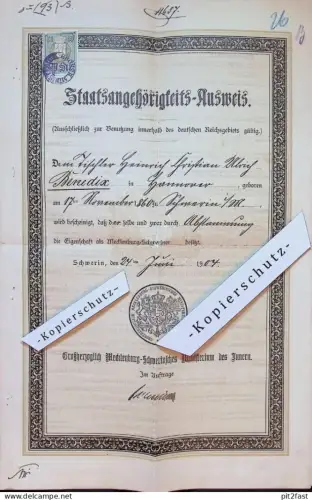 26
Staatsangehörigkeits-Ausweis.
(Ausschließlich zur Benutzung innerhalb des deutschen Reichsgebiets gültig.)
Dem Tischler Heinrich Christian Ulrich
Benedix in Hannover geboren
am 17. November 1860 Schwerin i/M.
wird bescheinigt, daß derselbe und zwar durch Abstammung
die Eigenschaft als Mecklenburg-Schweriner besitzt.
Schwerin, den 24. Juni 1904.
-Kopierschutz-
-Kopierschutz-
-Kopierschutz-
Großherzoglich Mecklenburg-Schwerinsches Ministerium des Innern.
Im Auftrage
pst2fast on ansichtskartenversand.com